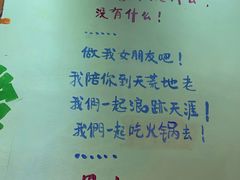 没有什么！
……
做我女朋友吧！
我陪你到天荒地老
我们一起浪跡天涯！
我們一起吃火锅去！
……